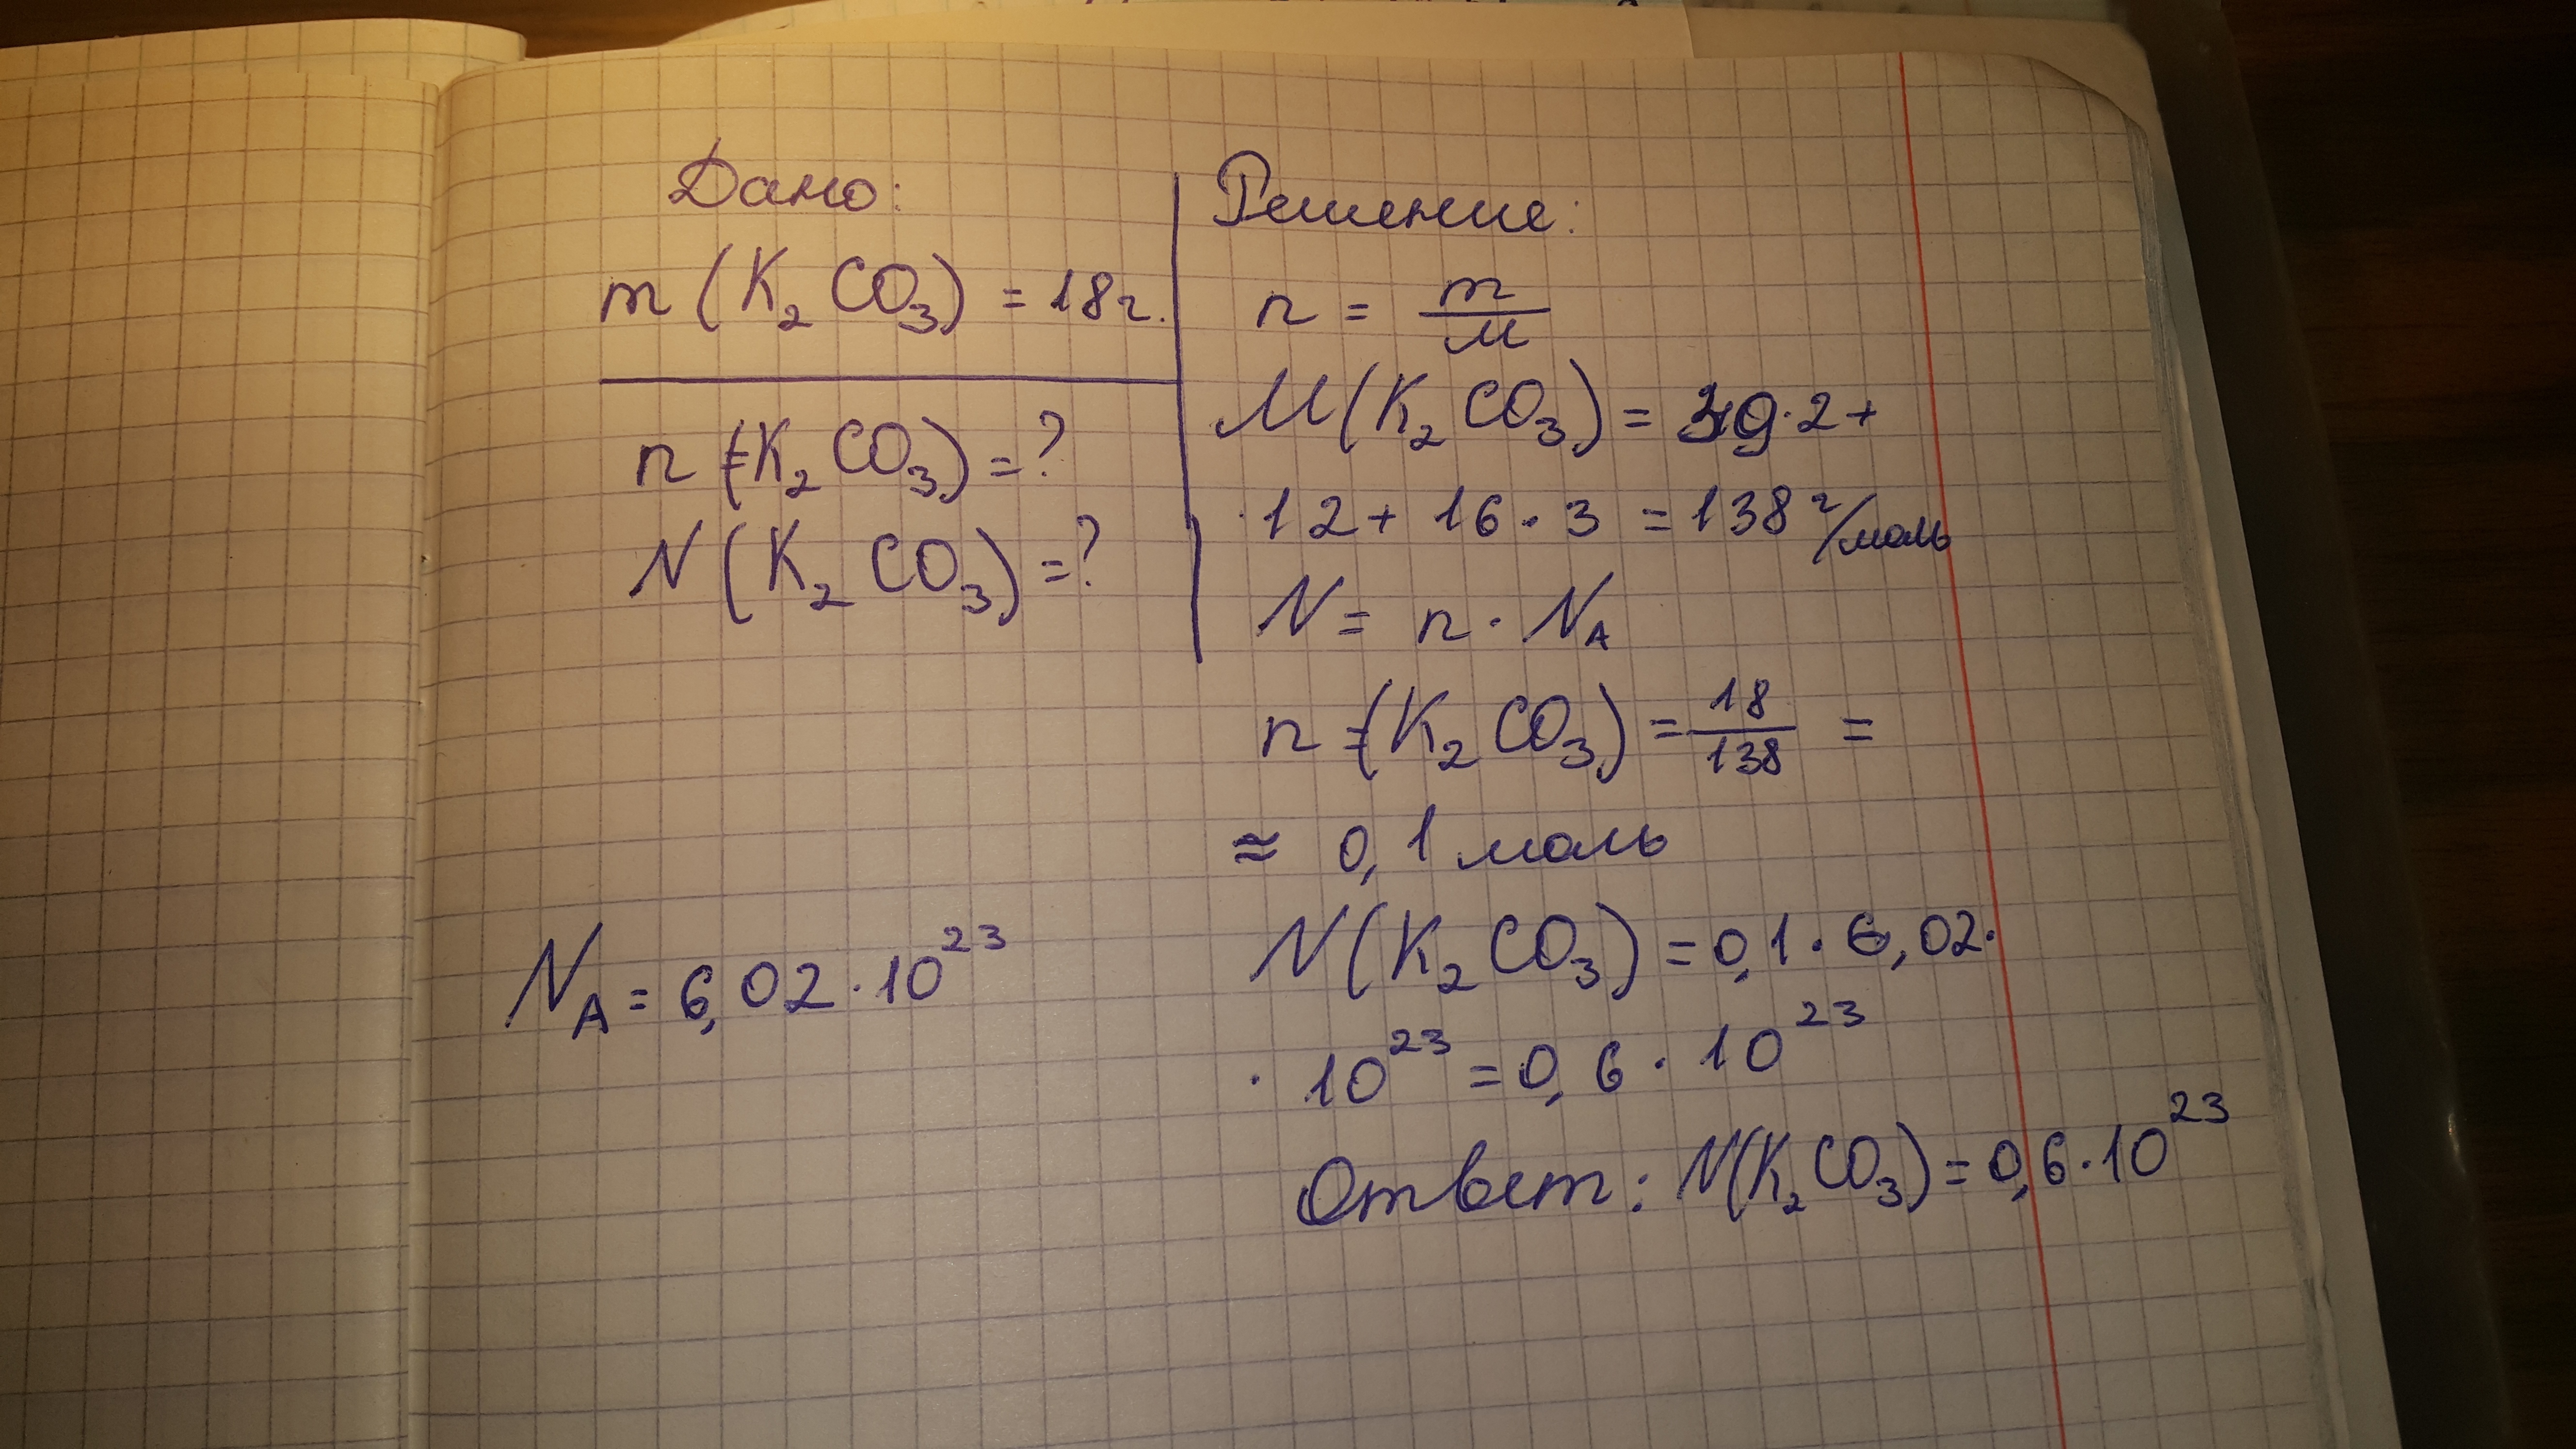 Дано:
m (K₂CO₃) = 18г.
n (K₂CO₃) = ?
N (K₂CO₃) = ?
Nₐ = 6,02 · 10²³
Решение:
n = m/M
M(K₂CO₃) = 39·2 +
·12 + 16 · 3 = 138 г/моль
N = n · Nₐ
n (K₂CO₃) = 18/138 =
≈ 0,1 моль
N (K₂CO₃) = 0,1 · 6,02 ·
· 10²³ = 0,6 · 10²³
Ответ: N(K₂CO₃) = 0,6 · 10²³